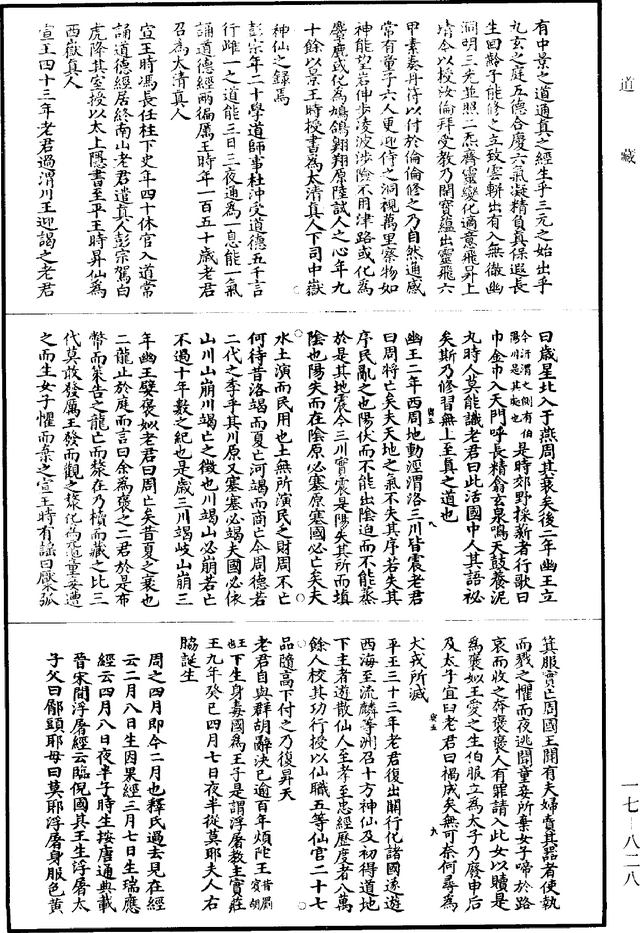 道藏
有中景之道通真之經生乎三元之始出乎
九玄之庭五德合慶六氣凝精負真保遐長
生回齡子能修之立致雲軿出有入無徹幽
洞明三光並照二炁齊靈變化適意飛昇上
清今以授汝倫拜受教乃開寶蘊出靈飛六
甲素奏丹符以付於倫倫修之乃自然通感
常有童子六人更迎侍之洞視萬里察物如
神能望岩伸步凌波涉險不用津路或化為
麐鹿或化為鳩鴿翱翔原陸試人之心年九
十餘以景王時授書為太清真人下司中嶽
神仙之録焉
彭宗年二十學道師事杜沖受道德五千言
行雌一之道能三日三夜通為一息能一氣
誦道德經兩徧厲王時年一百五十歲老君
召為太清真人
宣王時馮長任柱下史年四十休官入道常
誦道德經居終南山老君遣真人彭宗駕白
虎降其室授以太上隱書至平王時昇仙為
西嶽真人
宣王四十三年老君過渭川王迎謁之老君
曰歲星北入于燕周其衰矣後二年幽王立
今汧渭之側有伯陽川是其起也
是時郊野採薪者行歌曰
巾金巾入天門呼長精翕玄泉鳴天鼓養泥
九時人莫能識老君曰此活國中人其語祕
矣斯乃修習無上至真之道也
幽王二年西周地動涇渭洛三川皆震老君
曰周將亡矣夫天地之氣不失其序若失其
序民亂之也陽伏而不能出陰迫而不能蒸
於是其地震今三川實震是陽失其所而填
陰也陽失而在陰原必塞原塞國必亡矣夫
水土演而民用也土無所演民乏財用不亡
何待昔洛竭而夏亡河竭而商亡今周德若
二代之季乎其川原又塞塞必竭夫國必依
山川山崩川竭亡之徵也川竭山必崩若亡
不過十年數之紀也是歲三川竭岐山崩三
年幽王嬖褒姒老君曰周亡矣昔夏之衰也
二龍止於庭而言曰余為褒之二君於是布
幣而策告之龍亡而漦在乃櫝而藏之比三
代莫敢發厲王發而觀之漦化為黿童妾遭
之而生女子懼而棄之宣王時有謡曰檿弧
箕服實亡周國王聞有夫婦賣其器者使執
而戮之懼而夜逃聞童妾所棄女子啼於路
哀而收之奔褒褒人有罪請入此女以贖是
為褒姒王愛之生伯服立為太子乃廢申后
及太子宜臼老君曰禍成矣無可奈何尋為
犬戎所滅
平王三十三年老君復出關行化諸國遂遊
西海至流麟等洲召十方神仙及初得道地
下主者遊散仙人至孝至忠經歷度者八萬
餘人校其功行授以仙職五等仙官二十七
品隨高下付之乃復昇天
老君自與群胡辭決已逾百年煩陀王
下生身毒國為王子是謂浮屠教主實莊
王九年癸巳四月七日夜半從莫耶夫人右
脇誕生
周之四月即今二月也釋氏過去見在經
云二月八日生因果經三月七日生瑞應
經云四月八日夜半子時生按唐通典載
晉宋間浮屠經云臨倪國其王生浮屠太
子父曰屑頭耶母曰莫耶浮屠身服色黃
一七—八二八